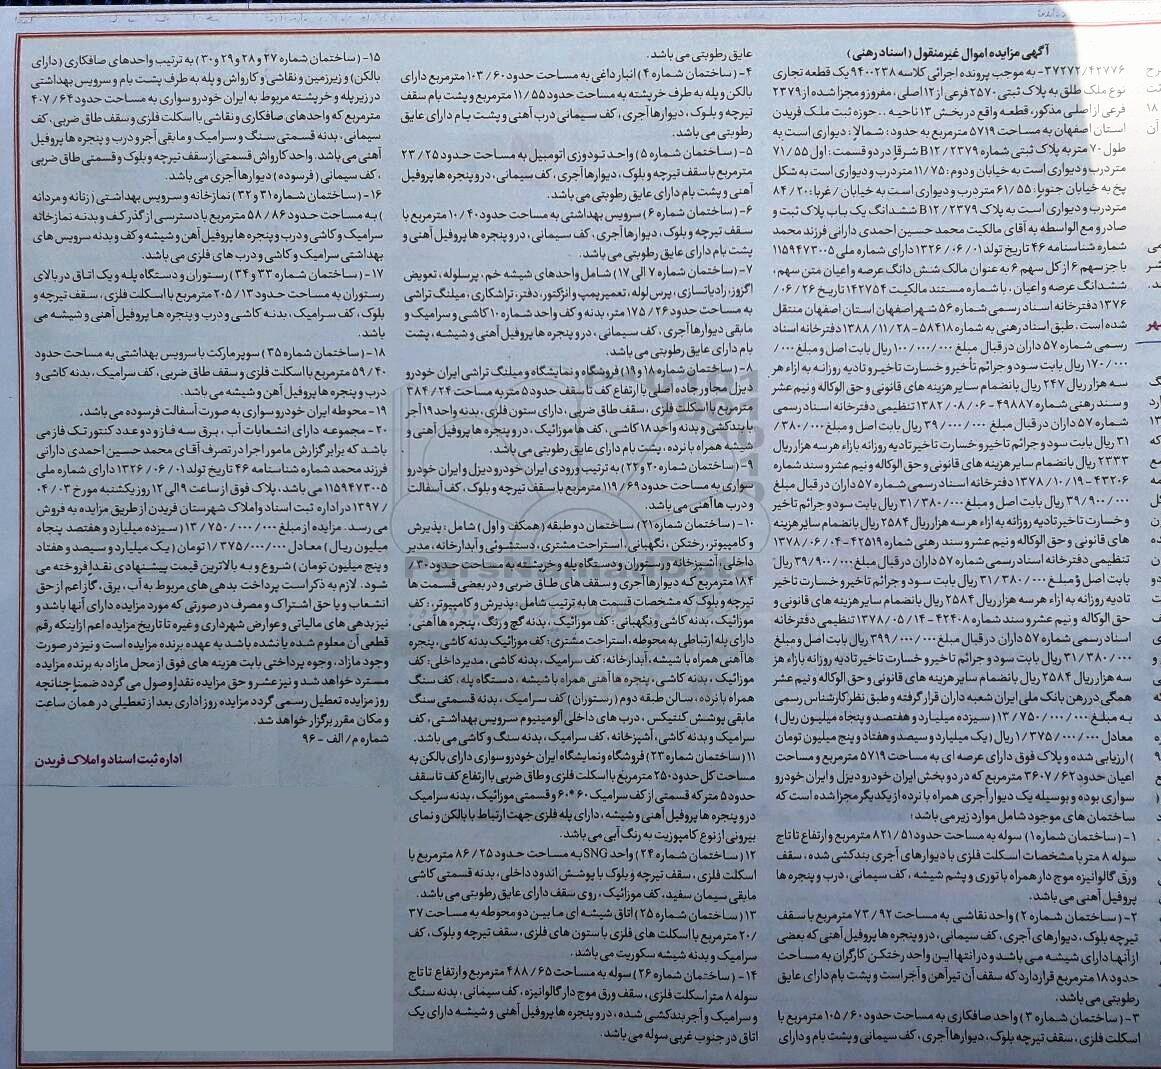 آگهی مزایده اموال غیر منقول ( اسناد رهنی )
۳۷۲۷۲/۴۲۷۷۶- به موجب پرونده اجرائی کلاسه ۹۴۰۰۲۳۸ یک قطعه تجاری
نوع ملک طلق به پلاک ثبتی ۲۵۷۰ فرعی از ۱۲ اصلی ، مفروز و مجزا شده از ۲۳۷۹
فرعی از اصلی مذکور، قطعه واقع در بخش ۱۳ ناحیه .. حوزه ثبت ملک فریدن
استان اصفهان به مساحت ۵۷۱۹ مترمربع به حدود: شمالا : دیواری است به
طول ۷۰ متر به پلاک ثبتی شماره B۱۲/۲۳۷۹ شرقا در دو قسمت : اول ۷۱/۵۵
متر درب و دیواری است به خیابان و دوم : ۱۱/۷۵ متر درب و دیواری است به شکل
پخ به خیابان جنوبا : ۶۱/۵۵ متر درب و دیواری است به خیابان / غربا : ۸۴/۲۰
متر درب و دیواری است به پلاک B۱۲/۲۳۷۹ ششدانگ یک باب پلاک ثبت و
صادر و مع الواسطه به آقای مالکیت محمد حسین احمدی دارانی فرزند محمد
شماره شناسنامه ۴۶ تاریخ تولد ۱۳۲۶/۰۶/۰۱ دارای شماره ملی ۱۱۵۹۴۷۳۰۰۵
با جز سهم ۶ از کل سهم ۶ به عنوان مالک شش دانگ عرصه و اعیان متن سهم :
ششدانگ عرصه و اعیان ، با شماره مستند مالکیت ۱۴۲۷۵۴ تاریخ ۲۶/۰۶/
۱۳۷۶ دفترخانه اسناد رسمی شماره ۵۶ شهر اصفهان استان اصفهان منتقل
شده است. طبق اسناد رهنی به شماره ۵۸۴۱۸- ۱۳۸۸/۱۱/۲۸ دفترخانه اسناد
رسمی شماره ۵۷ داران در قبال مبلغ ۱۰۰/۰۰۰/۰۰۰ ریال بابت اصل و مبلغ ۰۰۰/
۱۷۰/۰۰۰ ریال بابت سود و جرائم تأخیر و خسارت تاخیر و تادیه روزانه به ازاء هر
سه هزار ریال ۲۴۷ ریال بانضمام سایر هزینه های قانونی و حق الوکاله و نیم عشر
و سند رهنی شماره ۴۹۸۸۷- ۱۳۸۲/۰۸/۰۶ تنظیمی دفترخانه اسناد رسمی
شماره ۵۷ داران در قبال مبلغ ۳۹/۰۰۰/۰۰۰ ریال بابت اصل و مبلغ ۳۸۰/۰۰۰/
۳۱ ریال بابت سود و جرائم تاخیر و خسارت تاخیر تادیه روزانه بازاء هر سه هزار ریال
۲۳۳۳ ریال بانضمام سایر هزینه های قانونی و حق الوکاله و نیم عشر و سند شماره
۴۳۲۰۶- ۱۳۷۸/۱۰/۱۹ تنظیمی دفترخانه اسناد رسمی شماره ۵۷ داران در قبال مبلغ
۳۹/۹۰۰/۰۰۰ ریال بابت اصل و مبلغ ۳۱/۳۸۰/۰۰۰ ریال بابت سود و جرائم تاخیر
و خسارت تاخیر تادیه روزانه به ازاء هر سه هزار ریال ۲۵۸۴ ریال بانضمام سایر هزینه
های قانونی و حق الوکاله و نیم عشر و سند رهنی شماره ۴۲۵۱۹- ۱۳۷۸/۰۶/۰۴
تنظیمی دفترخانه اسناد رسمی شماره ۵۷ داران در قبال مبلغ ۳۹/۹۰۰/۰۰۰ ریال
بابت اصل و مبلغ ۳۱/۳۸۰/۰۰۰ ریال بابت سود و جرائم تاخیر و خسارت تاخیر
تادیه روزانه به ازاء هر سه هزار ریال ۲۵۸۴ ریال بانضمام سایر هزینه های قانونی و
حق الوکاله و نیم عشر و سند شماره ۴۲۴۰۸- ۱۳۷۸/۰۵/۱۴ تنظیمی دفترخانه
اسناد رسمی شماره ۵۷ داران در قبال مبلغ ۳۹۹/۰۰۰/۰۰۰ ریال بابت اصل و مبلغ
۳۱/۳۸۰/۰۰۰ ریال بابت سود و جرائم تاخیر و خسارت تاخیر تادیه روزانه بازاء هر
سه هزار ریال ۲۵۸۴ ریال بانضمام سایر هزینه های قانونی و حق الوکاله و نیم عشر
همگی در رهن بانک ملی ایران شعبه داران قرار گرفته و طبق نظر کارشناس رسمی
به مبلغ ۱۳/۷۵۰/۰۰۰/۰۰۰ ( سیزده میلیارد و هفتصد و پنجاه میلیون ریال )
معادل ۱/۳۷۵/۰۰۰/۰۰۰ ریال ( یک میلیارد و سیصد و هفتاد و پنج میلیون تومان
) ارزیابی شده و پلاک فوق دارای عرصه ای به مساحت ۵۷۱۹ مترمربع و مساحت
اعیان حدود ۳۶۰۷/۶۲ مترمربع که در دو بخش ایران خودرو دیزل و ایران خودرو
سواری بوده و بوسیله یک دیوار آجری همراه با نرده از یکدیگر مجزا شده است که
ساختمان های موجود شامل موارد زیر می باشد :
۱- ( ساختمان شماره ۱ ) سوله به مساحت حدود ۸۲۱/۵۱ مترمربع و ارتفاع تا تاج
سوله ۸ متر با مشخصات اسکلت فلزی با دیوارهای آجری بندکشی شده ، سقف
ورق گالوانیزه موج دار همراه با توری و پشم شیشه ، کف سیمانی ، درب و پنجره ها
پروفیل آهنی می باشد.
۲- ( ساختمان شماره ۲ ) واحد نقاشی به مساحت ۷۳/۹۲ مترمربع با سقف
تیرچه بلوک ، دیوارهای آجری ، کف سیمانی ، در و پنجره ها پروفیل آهنی که بعضی
از آنها دارای شیشه می باشد و در انتها این واحد رختکن کارگران به مساحت
حدود ۱۸ مترمربع قرار دارد که سقف آن تیرآهن و آجر است و پشت بام دارای عایق
رطوبتی می باشد.
۳- ( ساختمان شماره ۳ ) واحد صافکاری به مساحت حدود ۱۰۵/۶۰ مترمربع با
اسکلت فلزی ، سقف تیرچه بلوک ، دیوارها آجری ، کف سیمانی و پشت بام و دارای
عایق رطوبتی می باشد.
۴- ( ساختمان شماره ۴ ) انبار داغی به مساحت حدود ۱۰۳/۶۰ مترمربع دارای
بالکن و پله به طرف خرپشته به مساحت حدود ۱۱/۵۵ مترمربع و پشت بام سقف
تیرچه و بلوک ، دیوارها آجری ، کف سیمانی درب آهنی و پشت بام دارای عایق
رطوبتی می باشد.
۵- ( ساختمان شماره ۵ ) واحد تودوزی اتومبیل به مساحت حدود ۲۳/۲۵
مترمربع با سقف تیرچه و بلوک ، دیوارها آجری ، کف سیمانی ، در و پنجره ها پروفیل
آهنی و پشت بام دارای عایق رطوبتی می باشد.
۶- ( ساختمان شماره ۶ ) سرویس بهداشتی به مساحت حدود ۱۰/۴۰ مترمربع با
سقف تیرچه و بلوک ، دیوارها آجری ، کف سیمانی ، در و پنجره ها پروفیل آهنی و
پشت بام دارای عایق رطوبتی می باشد.
۷- ( ساختمان شماره ۷ الی ۱۷ ) شامل واحدهای شیشه خم ، پرسلوله ، تعویض
اگزوز، رادیاتسازی ، پرس لوله ، تعمیر پمپ و انژکتور، دفتر، تراشکاری ، میلنگ تراشی
به مساحت حدود ۱۷۵/۲۶ متر، بدنه و کف واحد شماره ۱۰ کاشی و سرامیک و
مابقی دیوارها آجری ، کف سیمانی ، در و پنجره ها پروفیل آهنی و شیشه ، پشت
بام دارای عایق رطوبتی می باشد.
۸- ( ساختمان شماره ۱۸ و ۱۹ ) فروشگاه و نمایشگاه و میلنگ تراشی ایران خودرو
دیزل مجاور جاده اصلی با ارتفاع کف تا سقف حدود ۵ متر به مساحت ۳۸۴/۲۴
مترمربع با اسکلت فلزی ، سقف طاق ضربی ، دارای ستون فلزی ، بدنه واحد ۱۹ آجر
با بندکشی و بدنه واحد ۱۸ کاشی ، کف ها موزائیک ، در و پنجره ها پروفیل آهنی و
شیشه همراه با نرده ، پشت بام دارای عایق رطوبتی می باشد.
۹- ( ساختمان شماره ۲۰ و ۲۲ ) به ترتیب ورودی ایران خودرو دیزل و ایران خودرو
سواری به مساحت حدود ۱۱۹/۶۹ مترمربع با سقف تیرچه و بلوک ، کف آسفالت
و درب ها آهنی می باشد.
۱۰- ( ساختمان شماره ۲۱ ) ساختمان دو طبقه ( همکف و اول ) شامل : پذیرش
و کامپیوتر، رختکن ، نگهبانی ، استراحت مشتری ، دستشوئی و آبدارخانه ، مدیر
داخلی ، آشپزخانه و رستوران و دستگاه پله و خرپشته به مساحت حدود ۳۰/
۱۸۴ مترمربع که دیوارها آجری و سقف های طاق ضربی و در بعضی قسمت ها
تیرچه و بلوک که مشخصات قسمت ها به ترتیب شامل : پذیرش و کامپیوتر: کف
موزائیک ، بدنه کاشی و نگهبانی : کف موزائیک ، بدنه گچ و رنگ ، پنجره ها آهنی ،
دارای پله ارتباطی به محوطه ، استراحت مشتری : کف موزائیک بدنه کاشی ، پنجره
ها آهنی همراه با شیشه ، آبدارخانه : کف سرامیک ، بدنه کاشی ، مدیر داخلی : کف
موزائیک ، بدنه کاشی ، پنجره ها آهنی همراه با شیشه ، دستگاه پله ، کف سنگ
همراه با نرده ، سالن طبقه دوم ( رستوران ) کف سرامیک ، بدنه قسمتی سنگ
مابقی پوشش کنتیکس ، درب های داخلی آلومینیوم سرویس بهداشتی ، کف
سرامیک و بدنه کاشی ، آشپزخانه ، کف سرامیک ، بدنه سنگ و کاشی می باشد.
۱۱ ( ساختمان شماره ۲۳ ) فروشگاه و نمایشگاه ایران خودرو سواری دارای بالکن به
مساحت کل حدود ۲۵۰ مترمربع با اسکلت فلزی و طاق ضربی با ارتفاع کف تا سقف
حدود ۵ متر که قسمتی از کف سرامیک ۶۰*۶۰ و قسمتی موزائیک ، بدنه سرامیک
در و پنجره ها پروفیل آهنی و شیشه ، دارای پله فلزی جهت ارتباط با بالکن و نمای
بیرونی از نوع کامپوزیت به رنگ آبی می باشد.
۱۲ ( ساختمان شماره ۲۴ ) واحد SNG به مساحت حدود ۸۶/۲۵ مترمربع با
اسکلت فلزی ، سقف تیرچه و بلوک با پوشش اندود داخلی ، بدنه قسمتی کاشی
مابقی سیمان سفید، کف موزائیک ، روی سقف دارای عایق رطوبتی می باشد.
۱۳ ( ساختمان شماره ۲۵ ) اتاق شیشه ای ما بین دو محوطه به مساحت ۳۷
/۲۰ مترمربع با اسکلت های فلزی با ستون های فلزی ، سقف تیرچه و بلوک ، کف
سرامیک و بدنه شیشه سکوریت می باشد.
۱۴- ( ساختمان شماره ۲۶ ) سوله به مساحت ۴۸۸/۶۵ مترمربع و ارتفاع تا تاج
سوله ۸ متر اسکلت فلزی ، سقف ورق موج دار گالوانیزه ، کف سیمانی ، بدنه سنگ
و سرامیک و آجر بندکشی شده ، در و پنجره ها پروفیل آهنی و شیشه دارای یک
اتاق در جنوب غربی سوله می باشد.
۱۵- ( ساختمان شماره ۲۷ و ۲۸ و ۲۹ و ۳۰ ) به ترتیب واحدهای صافکاری ( دارای
بالکن ) و زیرزمین و نقاشی و کارواش و پله به طرف پشت بام و سرویس بهداشتی
در زیر پله و خرپشته مربوط به ایران خودرو سواری به مساحت حدود ۴۰۷/۶۴
مترمربع که واحدهای صافکاری و نقاشی با اسکلت فلزی و سقف طاق ضربی ، کف
سیمانی ، بدنه قسمتی سنگ و سرامیک و مابقی آجر و درب و پنجره ها پروفیل
آهنی می باشد. واحد کارواش قسمتی از سقف تیرچه و بلوک و قسمتی طاق ضربی
، کف سیمانی ( فرسوده ) دیوارها آجری می باشد.
۱۶- ( ساختمان شماره ۳۱ و ۳۲ ) نمازخانه و سرویس بهداشتی ( زنانه و مردانه
) به مساحت حدود ۵۸/۸۶ مترمربع با دسترسی از گذر کف و بدنه نمازخانه
سرامیک و کاشی و درب و پنجره ها پروفیل آهن و شیشه و کف و بدنه سرویس های
بهداشتی سرامیک و کاشی و درب های فلزی می باشد.
۱۷- ( ساختمان شماره ۳۳ و ۳۴ ) رستوران و دستگاه پله و یک اتاق در بالای
رستوران به مساحت حدود ۲۰۵/۱۳ مترمربع با اسکلت فلزی ، سقف تیرچه و
بلوک ، کف سرامیک ، بدنه کاشی و درب و پنجره ها پروفیل آهنی و شیشه می
باشد.
۱۸- ( ساختمان شماره ۳۵ ) سوپر مارکت با سرویس بهداشتی به مساحت حدود
۵۹/۴۰ مترمربع با اسکلت فلزی و سقف طاق ضربی ، کف سرامیک ، بدنه کاشی و
درب و پنجره ها پروفیل آهن و شیشه می باشد.
۱۹- محوطه ایران خودرو سواری به صورت آسفالت فرسوده می باشد.
۲۰- مجموعه دارای انشعابات آب ، برق سه فاز و دو عدد کنتور تک فاز می
باشد که برابر گزارش مامور اجرا در تصرف آقای محمد حسین احمدی دارانی
فرزند محمد شماره شناسنامه ۴۶ تاریخ تولد ۱۳۲۶/۰۶/۰۱ دارای شماره ملی
۱۱۵۹۴۷۳۰۰۵ می باشد، پلاک فوق از ساعت ۹ الی ۱۲ روز یکشنبه مورخ ۰۳/۰۴
/۱۳۹۷ در اداره ثبت اسناد و املاک شهرستان فریدن از طریق مزایده به فروش
می رسد. مزایده از مبلغ ۱۳/۷۵۰/۰۰۰/۰۰۰ ( سیزده میلیارد و هفتصد پنجاه
میلیون ریال ) معادل ۱/۳۷۵/۰۰۰/۰۰۰ تومان ( یک میلیارد و سیصد و هفتاد
و پنج میلیون تومان ) شروع و به بالاترین قیمت پیشنهادی نقدا فروخته می
شود. لازم به ذکر است پرداخت بدهی های مربوط به آب ، برق ، گاز اعم از حق
انشعاب و یا حق اشتراک و مصرف در صورتی که مورد مزایده دارای آنها باشد و
نیز بدهی های مالیاتی و عوارض شهرداری و غیره تا تاریخ مزایده اعم از اینکه رقم
قطعی آن معلوم شده یا نشده باشد به عهده برنده مزایده است و نیز در صورت
وجود مازاد، وجوه پرداختی بابت هزینه های فوق از محل مازاد به برنده مزایده
مسترد خواهد شد و نیز عشر و حق مزایده نقدا وصول می گردد ضمنا چنانچه
روز مزایده تعطیل رسمی گردد مزایده روز اداری بعد از تعطیلی در همان ساعت
و مکان مقرر برگزار خواهد شد.
شماره م/ الف - ۹۶
اداره ثبت اسناد و املاک فریدن